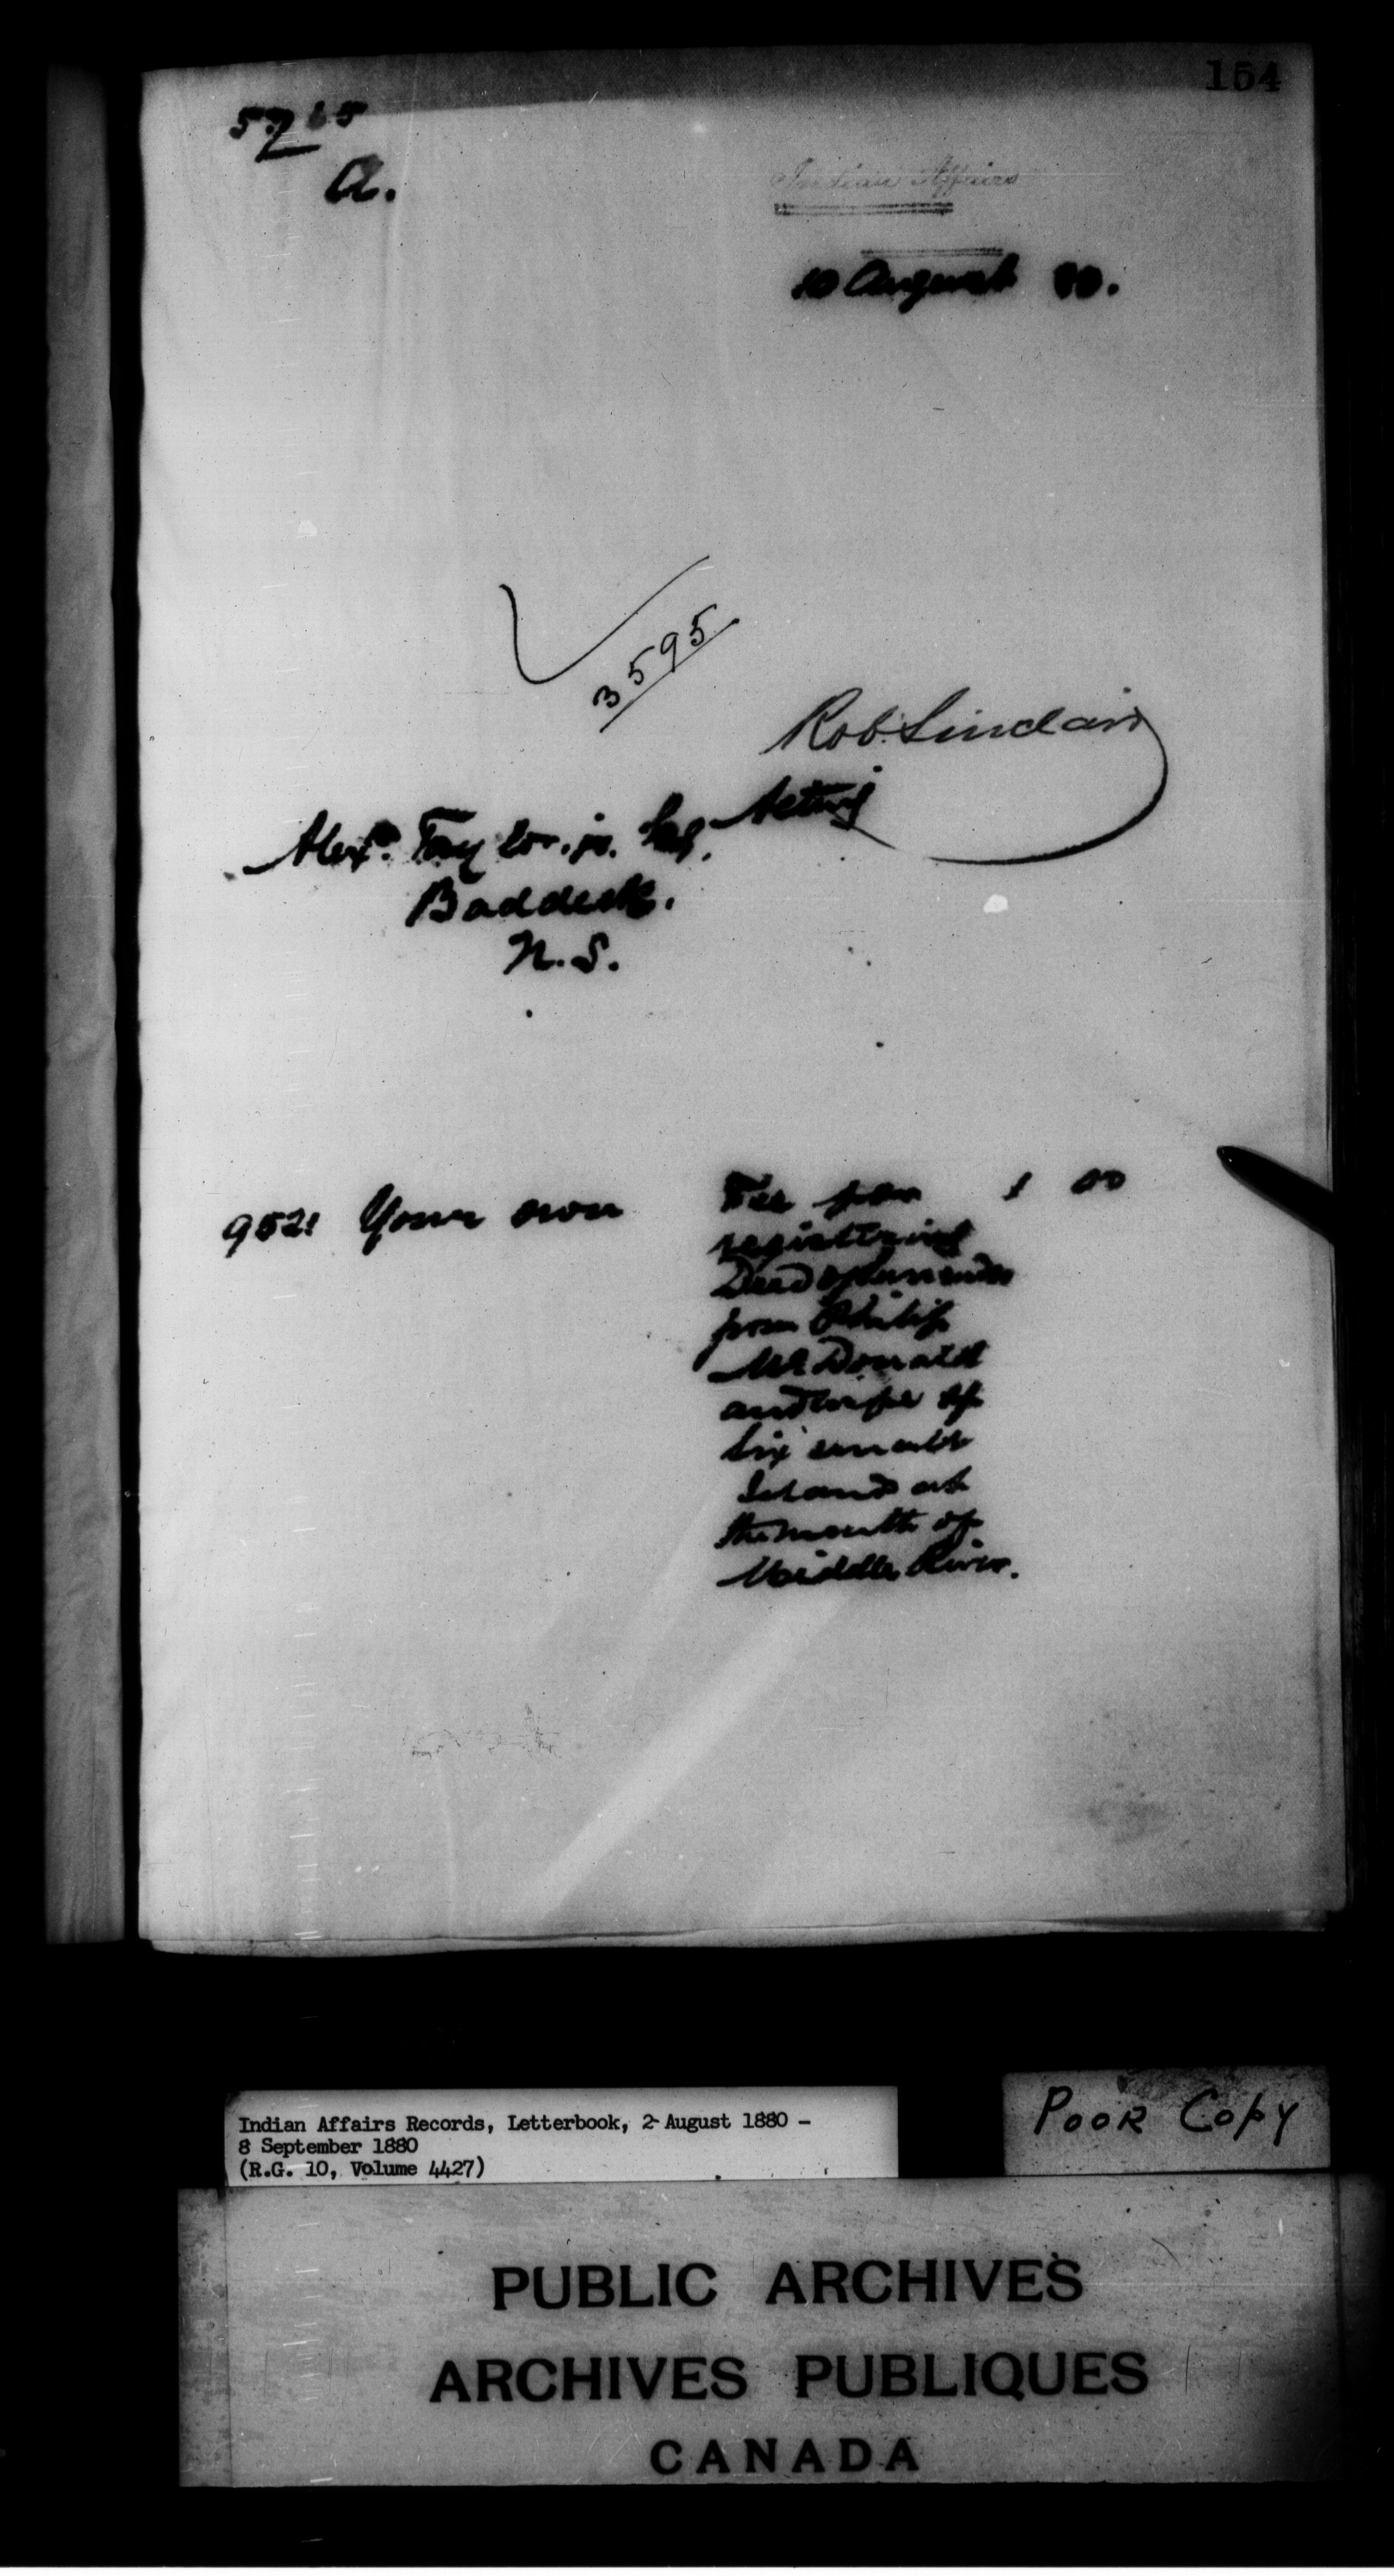 154
5765
A.
Indian Affairs
10 August 80.
3595
Rob. Sinclair
Acting
Alexr. Taylor, jr. Esq.
Baddeck.
N.S.
952! Your own
Fee for 1 00
registering
Deed of Surrender
from Philip
McDonald
and wife of
six small
Islands at
the mouth of
Middle River.
Indian Affairs Records, Letterbook, 2-August 1880 -
8 September 1880
(R.G. 10, Volume 4427)
POOR COPY
PUBLIC ARCHIVES
ARCHIVES PUBLIQUES
CANADA